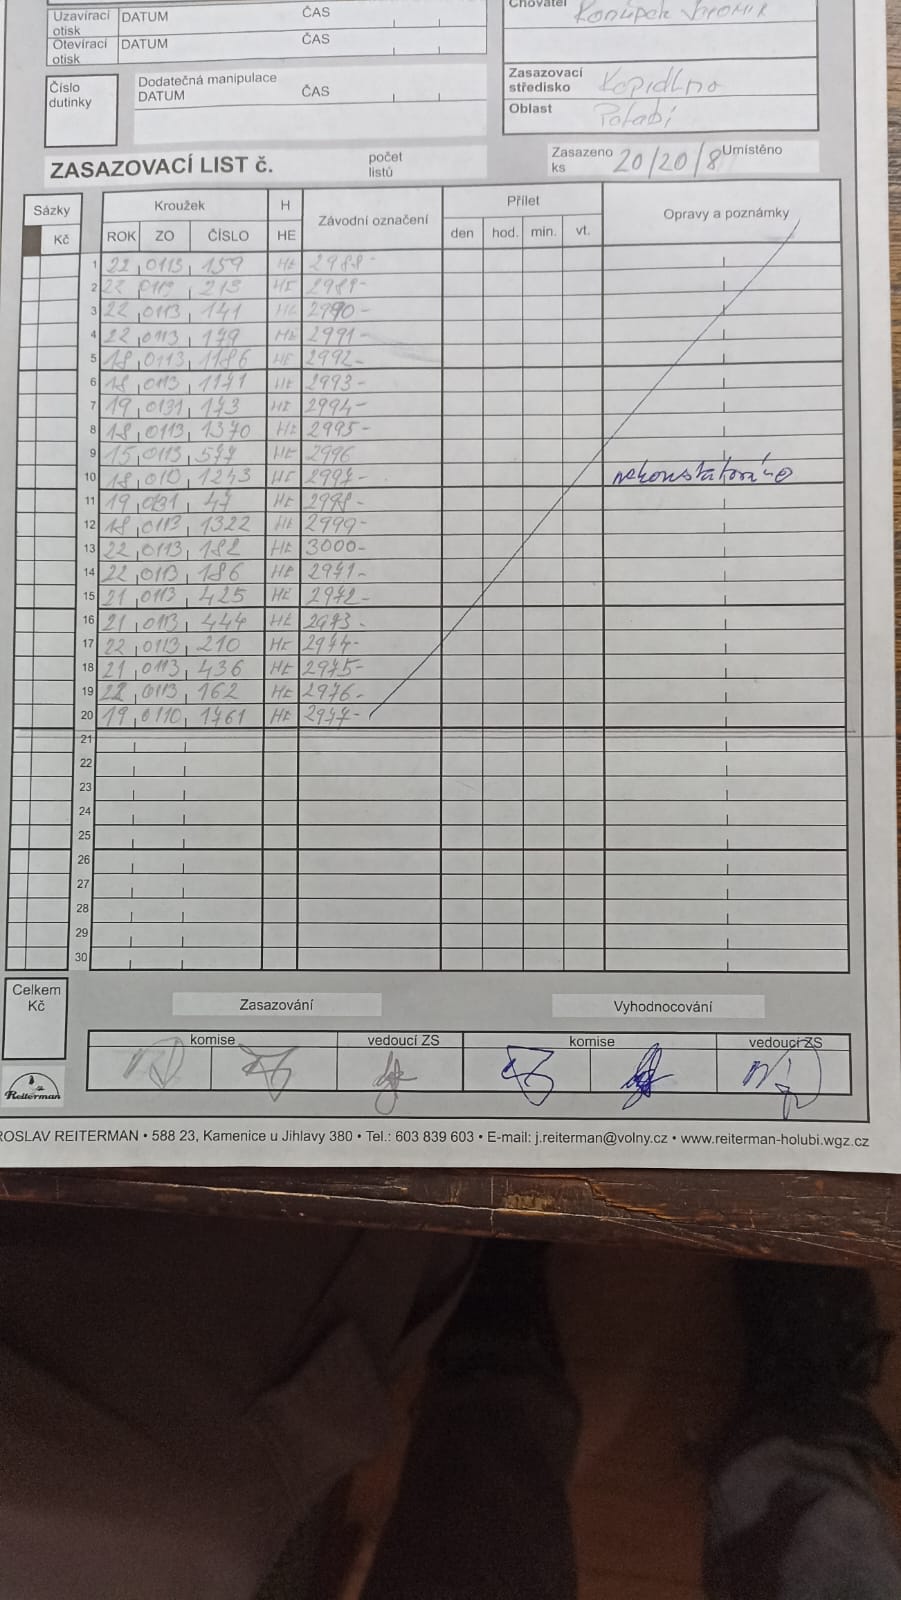 Uzavírací otisk DATUM ČAS
Otevírací otisk DATUM ČAS
Chovatel
Číslo dutinky
Dodatečná manipulace
DATUM ČAS
Zasazovací středisko Kopidlno
Oblast Polabí
ZASAZOVACÍ LIST č. počet listů
Zasazeno ks 20/20/8 Umístěno
Sázky Kroužek H Závodní označení Přílet Opravy a poznámky
Kč ROK ZO ČÍSLO HE den hod. min. vt.
1 22 0113 159 HE 2988-
2 22 0113 213 HE 2989-
3 22 0113 141 HE 2990-
4 22 0113 179 HE 2991-
5 18 0113 1186 HE 2992-
6 18 0113 1171 HE 2993-
7 19 0131 173 HE 2994-
8 18 0113 1370 HE 2995-
9 15 0113 577 HE 2996
10 18 010 1243 HE 2997- nekonstatováno
11 19 031 47 HE 2998-
12 18 0113 1322 HE 2999-
13 22 0113 182 HE 3000-
14 22 0113 186 HE 2971-
15 21 0113 425 HE 2972-
16 21 0113 444 HE 2973-
17 22 0113 210 HE 2974-
18 21 0113 436 HE 2975-
19 22 0113 162 HE 2976-
20 19 0110 1761 HE 2977-
21
22
23
24
25
26
27
28
29
30
Celkem Kč
Zasazování Vyhodnocování
komise vedoucí ZS komise vedoucí ZS
Reiterman
ROSLAV REITERMAN • 588 23, Kamenice u Jihlavy 380 • Tel.: 603 839 603 • E-mail: j.reiterman@volny.cz • www.reiterman-holubi.wgz.cz